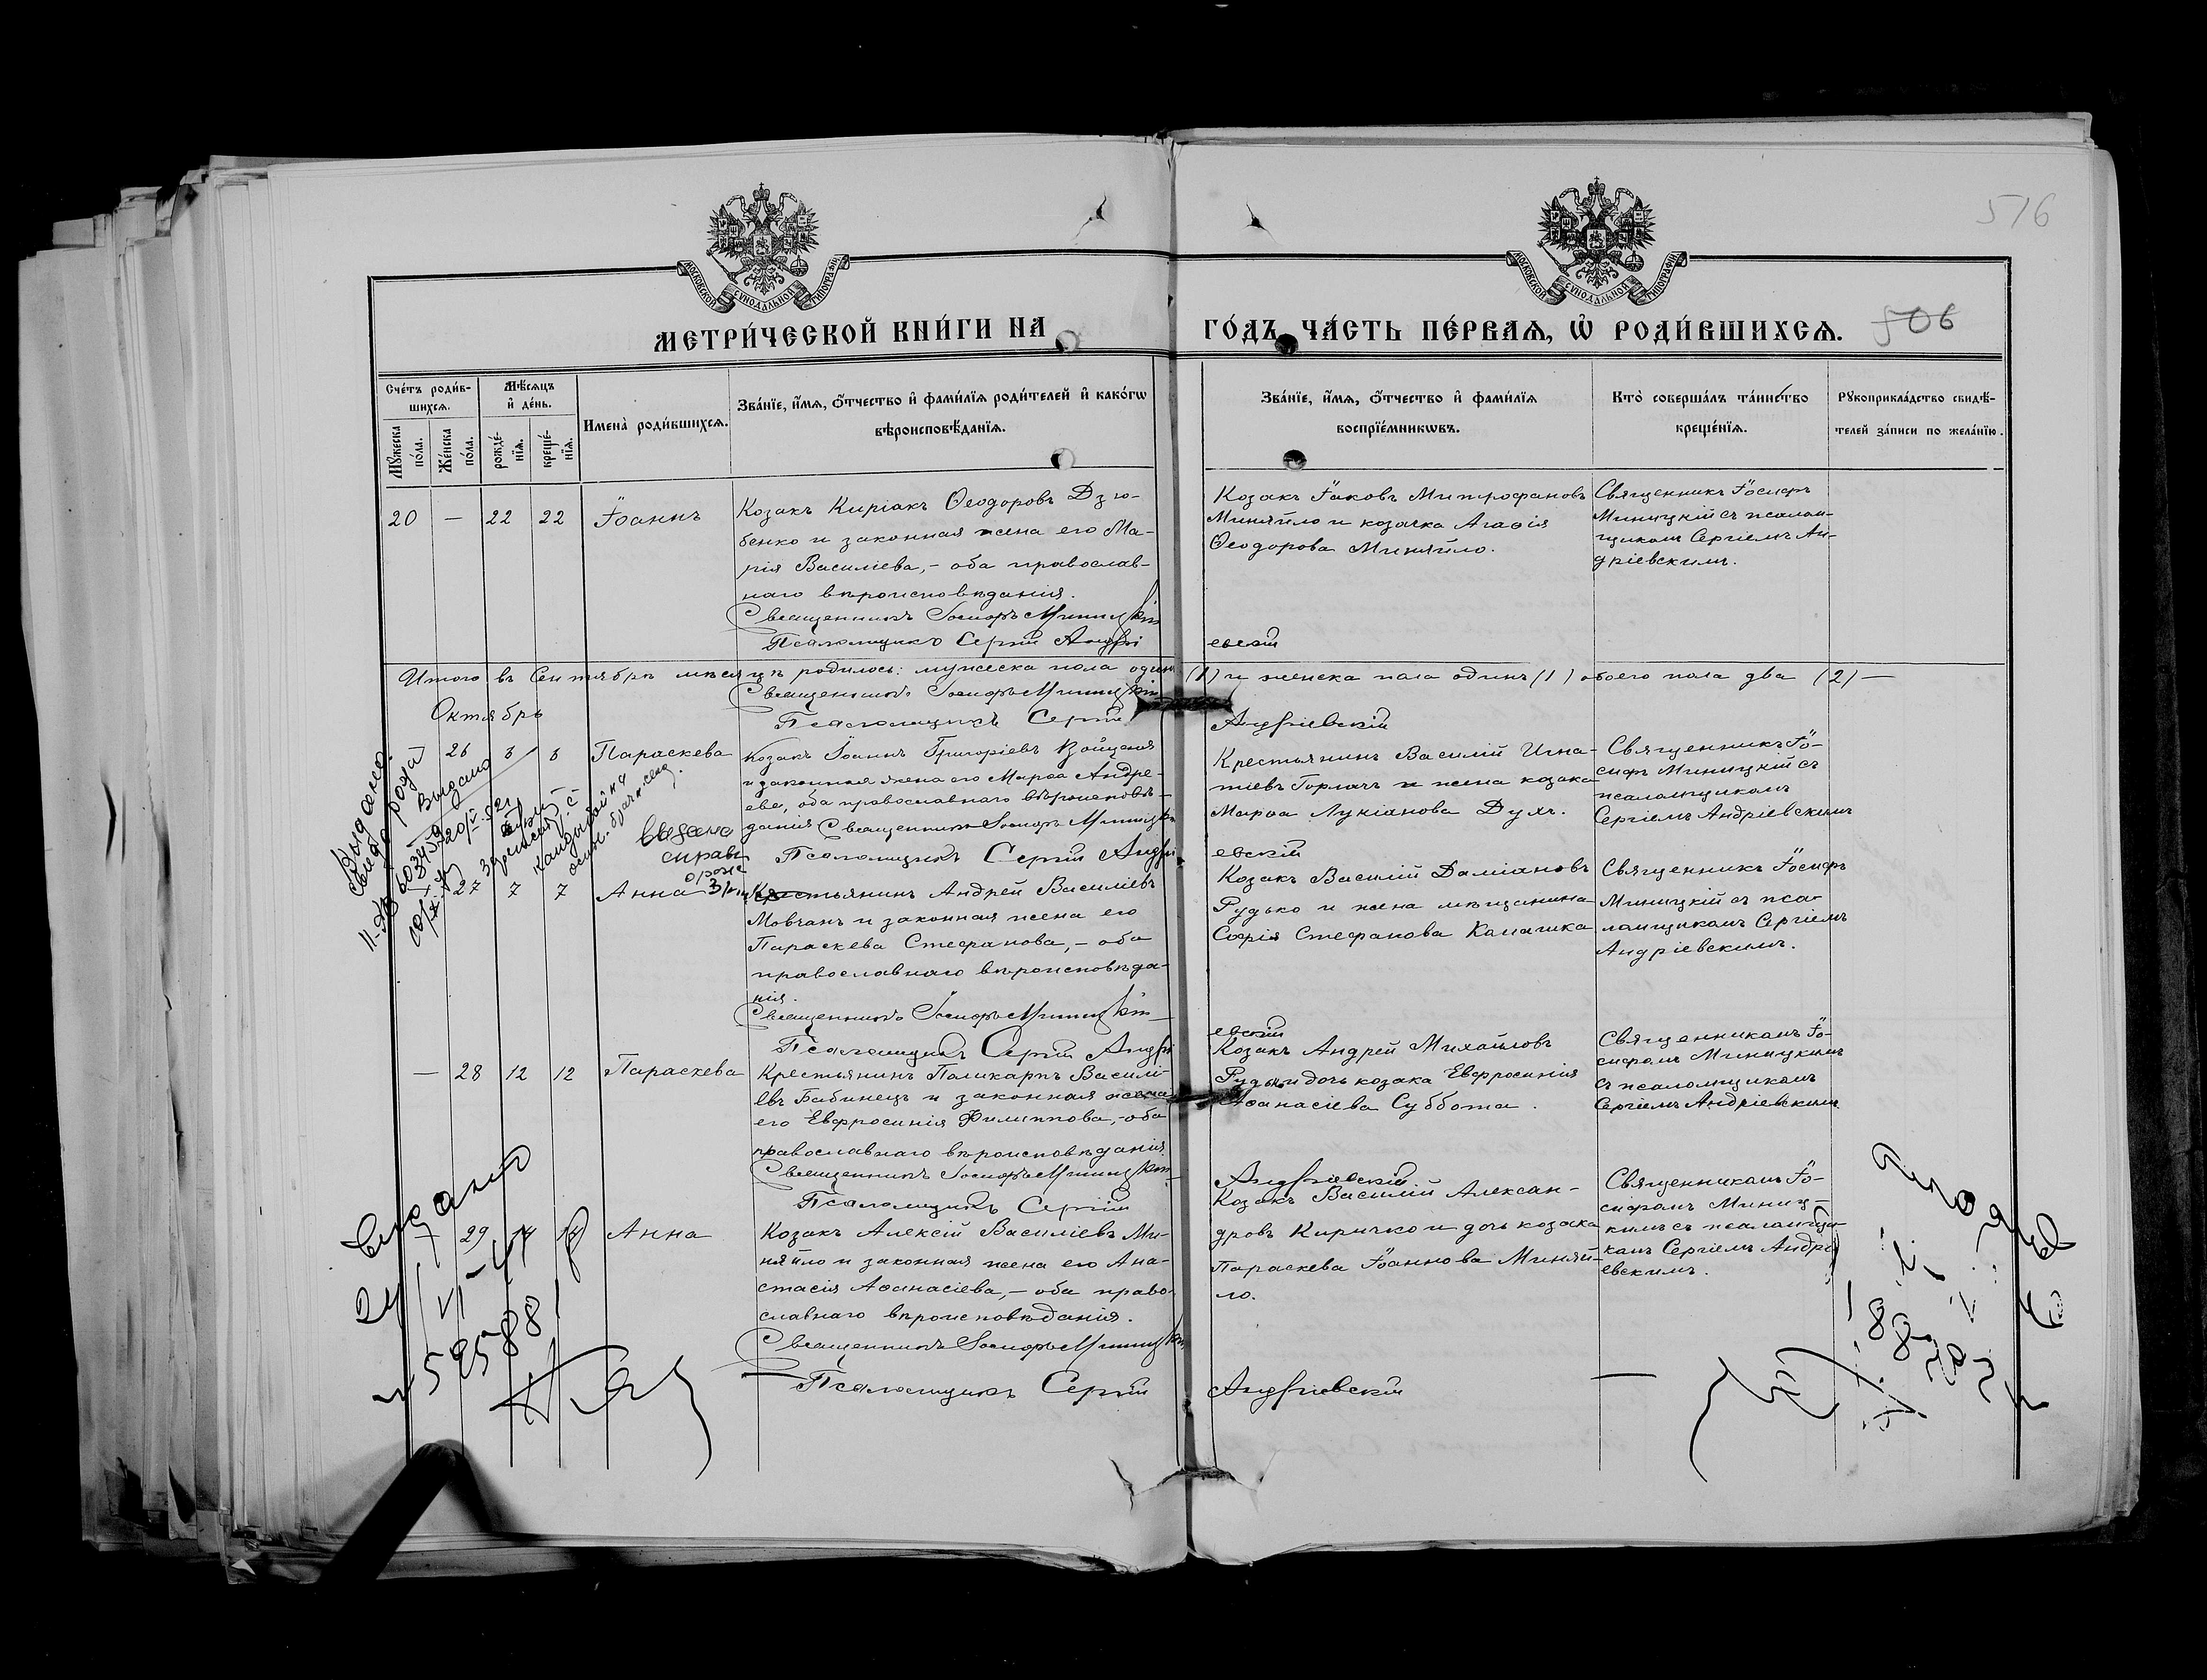 516
МОСКОВСКОЙ СУНОДАЛЬНОЙ ТИПОГРАФІИ
МОСКОВСКОЙ СУНОДАЛЬНОЙ ТИПОГРАФІИ
МЕТРИ́ЧЕСКОЙ КНИ́ГИ НА ГО́ДЪ, ЧА́СТЬ ПЕ́РВАѦ, Ѡ РОДИ́ВШИХСѦ.
506
Сче́тъ роди́в-
шихсѧ.
Мꙋ́жеска по́ла.
Же́нска по́ла.
Мѣ́сѧцъ
и де́нь.
рожде́-нїѧ.
креще́-нїѧ.
Имена̀ роди́вшихсѧ.
Зва́нїе, и́мѧ, ѻ́тчество и фами́лїѧ роди́телей и како́гѡ
вѣроисповѣ́данїѧ.
Зва́нїе, и́мѧ, ѻ́тчество и фами́лїѧ
воспрїе́мникѡвъ.
Кто̀ соверша́лъ та́инство
креще́нїѧ.
Рꙋкоприкла́дство свидѣ́-
телей за́писи по жела́нїю.
20 — 22 22 Іоаннъ
Козакъ Киріакъ Ѳеодоровъ Дзю-
бенко и законная жена его Ма-
рія Василіева, - оба православ-
наго вѣроисповѣданія.
Священникъ Іосифъ Миницкій
Псаломщикъ Сергій Андрі
евскій
Козакъ Іаковъ Митрофановъ
Миняйло и козачка Агафія
Ѳеодорова Миняйло.
Священникъ Іосифъ
Миницкій съ псалом-
щикомъ Сергіемъ Ан-
дріевскимъ.
Итого въ Сентябрѣ мѣсяцѣ родилось: мужеска пола одинъ (1) и женска пола одинъ (1) обоего пола два (2) —
Священникъ Іосифъ Миницкій
Псаломщикъ Сергій Андріевскій
Октябрь
26 Параскева
Козакъ Іоаннъ Григоріевъ
и законная жена его Марѳа Андре-
ева, оба православнаго вѣроисповѣ-
данія Священникъ Іосифъ Миницкій
Псаломщикъ Сергій Андрі
евскій
Крестьянинъ Василій Игна-
тіевъ Горлачъ и жена козака
Марѳа Лукіанова Духъ.
Священникъ Іо-
сифъ Миницкій съ
псаломщикомъ
Сергіемъ Андріевскимъ
Выдано
27 7 7 Анна
Крестьянинъ Андрей Василіевъ
Мовчанъ и законная жена его
Параскева Стефанова, - оба
православнаго вѣроисповѣда-
нія.
Священникъ Іосифъ Миницкій
Псаломщикъ Сергій Андрі
евскій
Козакъ Василій Даміановъ
Рудько и жена мѣщанина
Софія Стефанова
Священникъ Іосифъ
Миницкій съ пса-
ломщикомъ Сергіемъ
Андріевскимъ.
— 28 12 12 Параскева
Крестьянинъ Поликарпъ Василі-
евъ Бабинецъ и законная жена
его Евфросинія Филиппова, - оба
православнаго вѣроисповѣданія.
Священникъ Іосифъ Миницкій
Псаломщикъ Сергій
Андріевскій
Козакъ Андрей Михайловъ
и дочь козака Евфросинія
Аѳанасіева Суббота.
Священникомъ Іо-
сифомъ Миницкимъ
съ псаломщикомъ
Сергіемъ Андріевскимъ
29 Анна
Козакъ Алексій Василіевъ Ми-
няйло и законная жена его Ана-
стасія Аѳанасіева, - оба право-
славнаго вѣроисповѣданія.
Священникъ Іосифъ Миницкій
Псаломщикъ Сергій Андріевскій
Козакъ Василій Алексан-
дровъ Киричко и дочь козака
Параскева Іоаннова Миняй-
ло.
Священникомъ Іо-
сифомъ Миниц-
кимъ съ псаломщи-
комъ Сергіемъ Андрі
евскимъ.